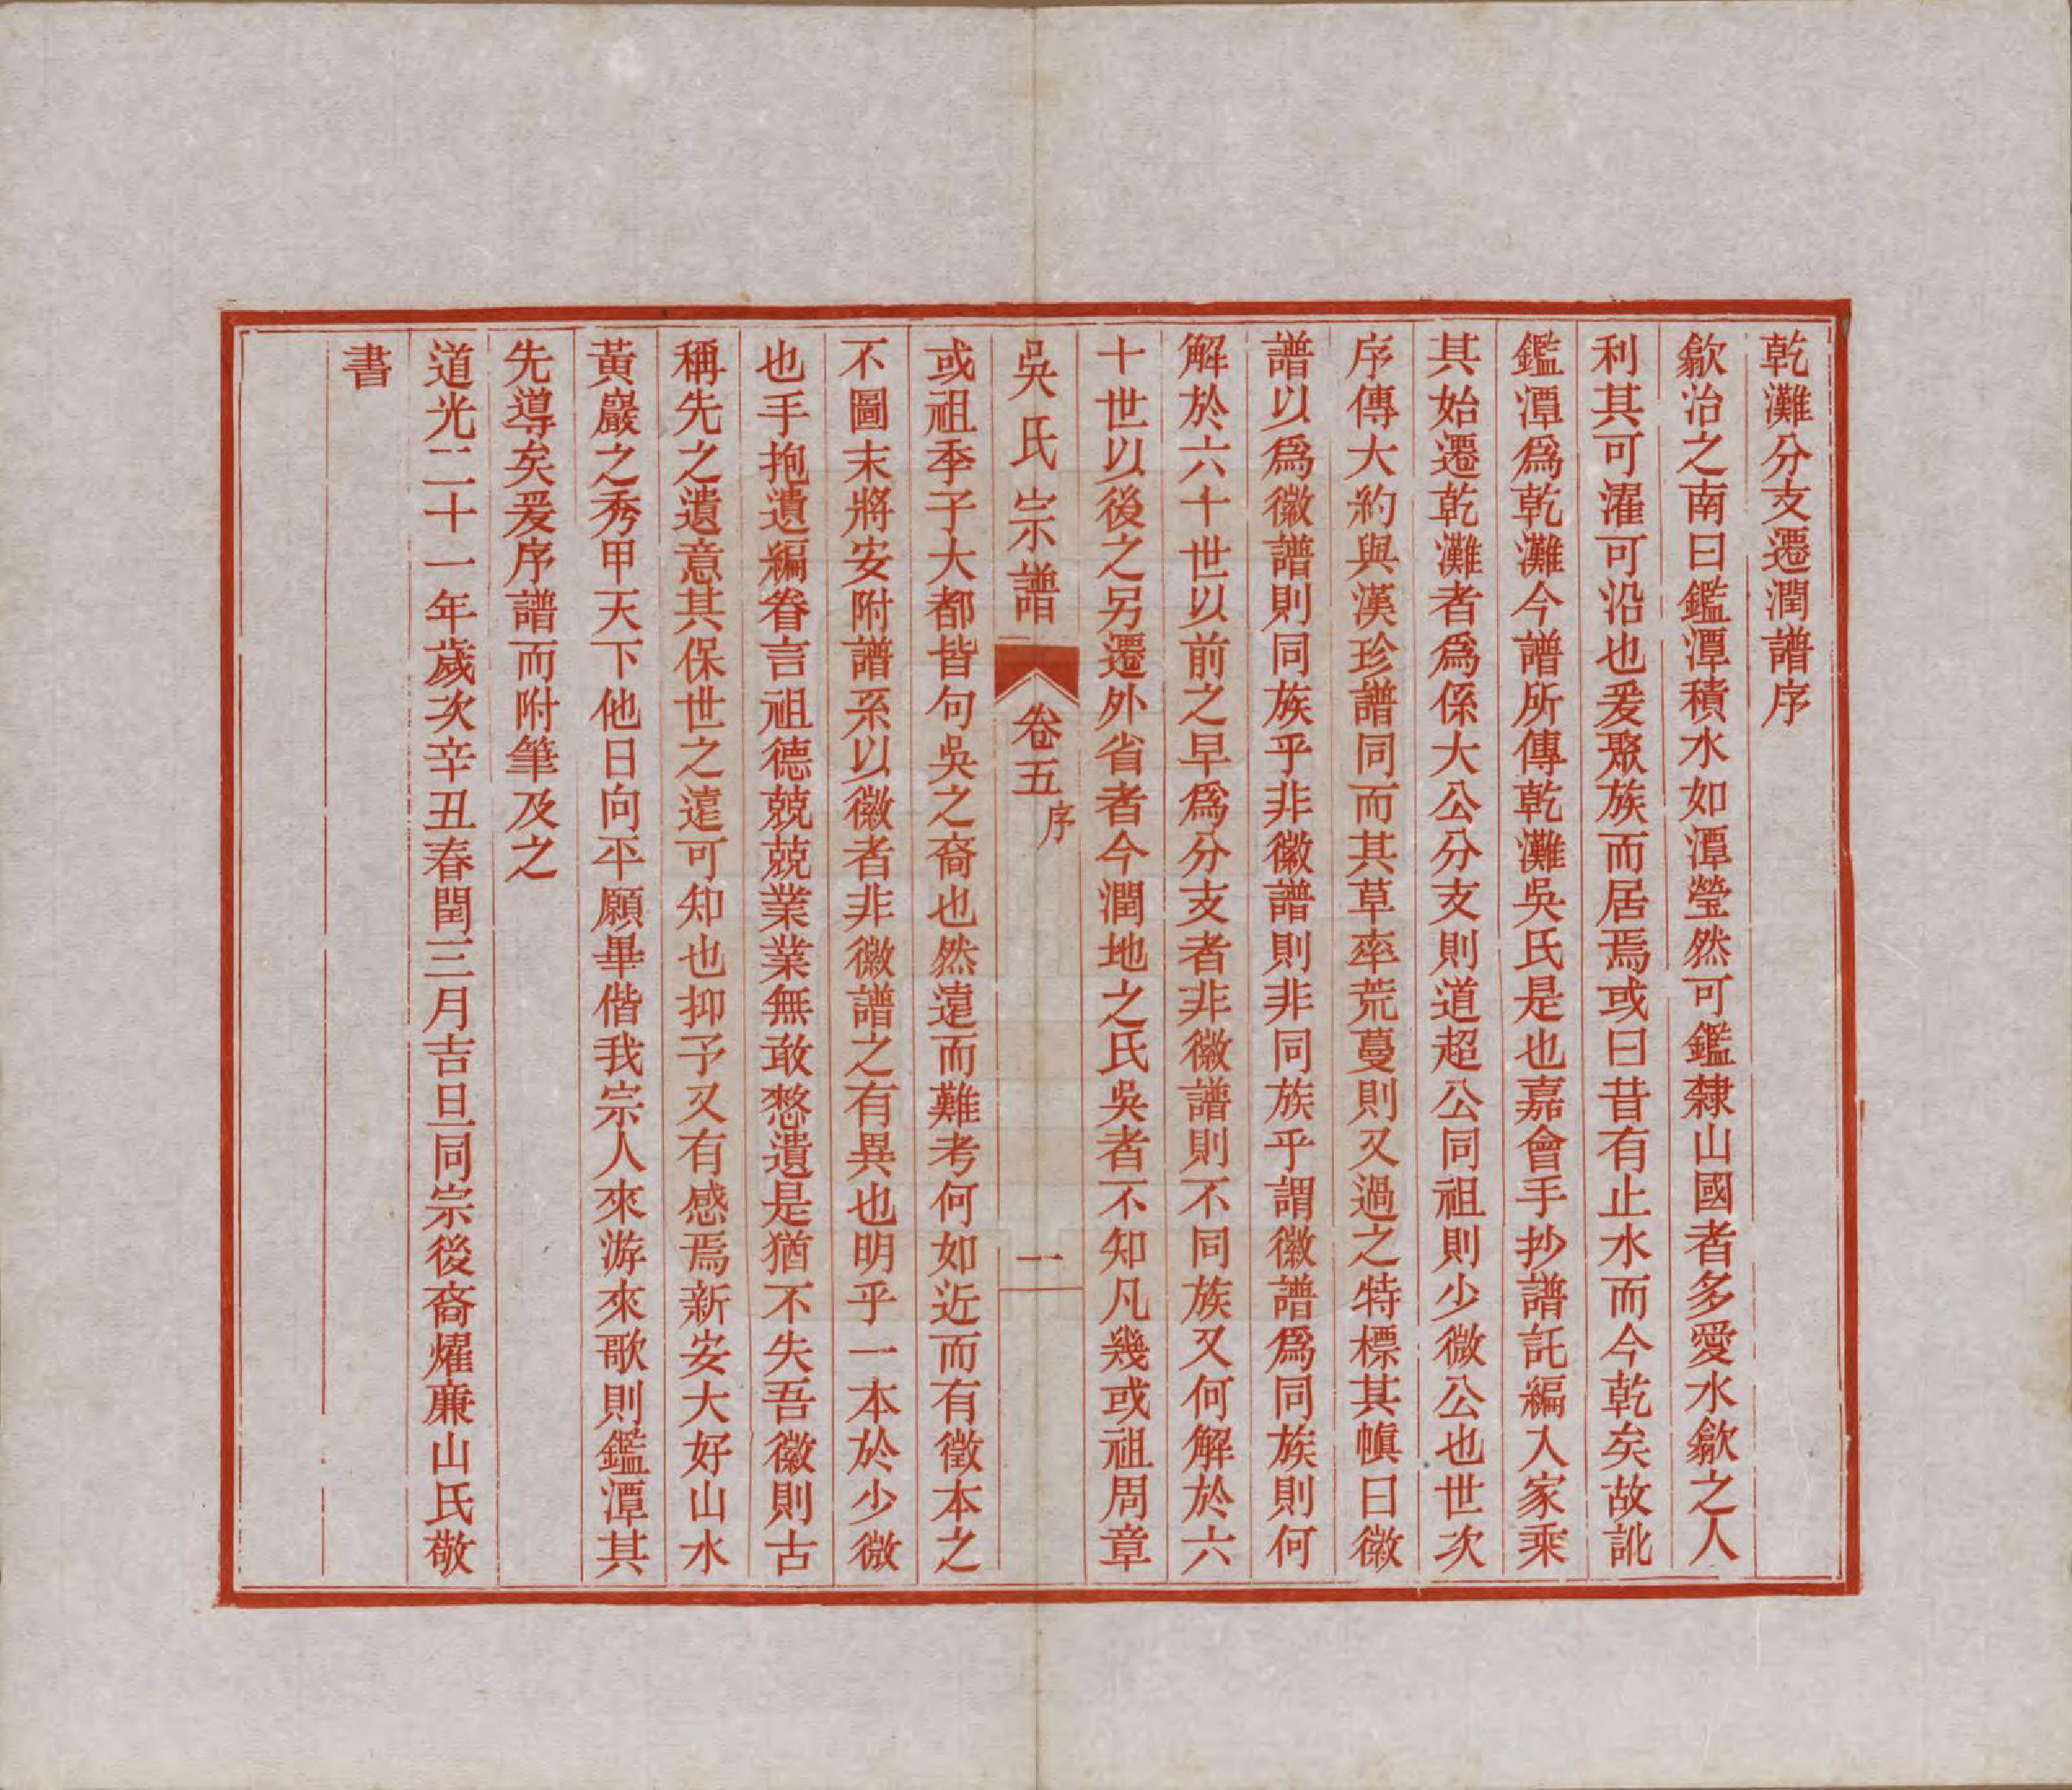 乾灘分支遷潤譜序
歙治之南曰鑑潭積水如潭瑩然可鑑隸山國者多愛水歙之人
利其可濯可沿也爰聚族而居焉或曰昔有止水而今乾矣故訛
鑑潭爲乾灘今譜所傳乾灘吳氏是也嘉會手抄譜託編入家乘
其始遷乾灘者爲係大公分支則道超公同祖則少微公也世次
序傳大約與漢珍譜同而其草率荒蔓則又過之特標其幀曰徽
譜以爲徽譜則同族乎非徽譜則非同族乎謂徽譜爲同族則何
解於六十世以前之早爲分支者非徽譜則不同族又何解於六
十世以後之另遷外省者今潤地之氏吳者不知凡幾或祖周章
吳氏宗譜 卷五 序 一
或祖季子大都皆句吳之裔也然遠而難考何如近而有徵本之
不圖末將安附譜系以徽者非徽譜之有異也明乎一本於少微
也手抱遺編眷言祖德兢兢業業無敢愸遺是猶不失吾徽則古
稱先之遺意其保世之遠可知也抑予又有感焉新安大好山水
黃巖之秀甲天下他日向平願畢偕我宗人來游來歌則鑑潭其
先導矣爰序譜而附筆及之
道光二十一年歲次辛丑春閏三月吉旦同宗後裔燿廉山氏敬
書